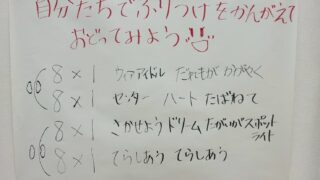 自分たちでふりつけをかんがえて
おどってみよう
8×1 ウィアアイドル だれもが かがやく
8×1 センター ハート たばねて
8×1 さかせよう ドリーム たがいがスポットライト
8×1 てらしあう てらしあう